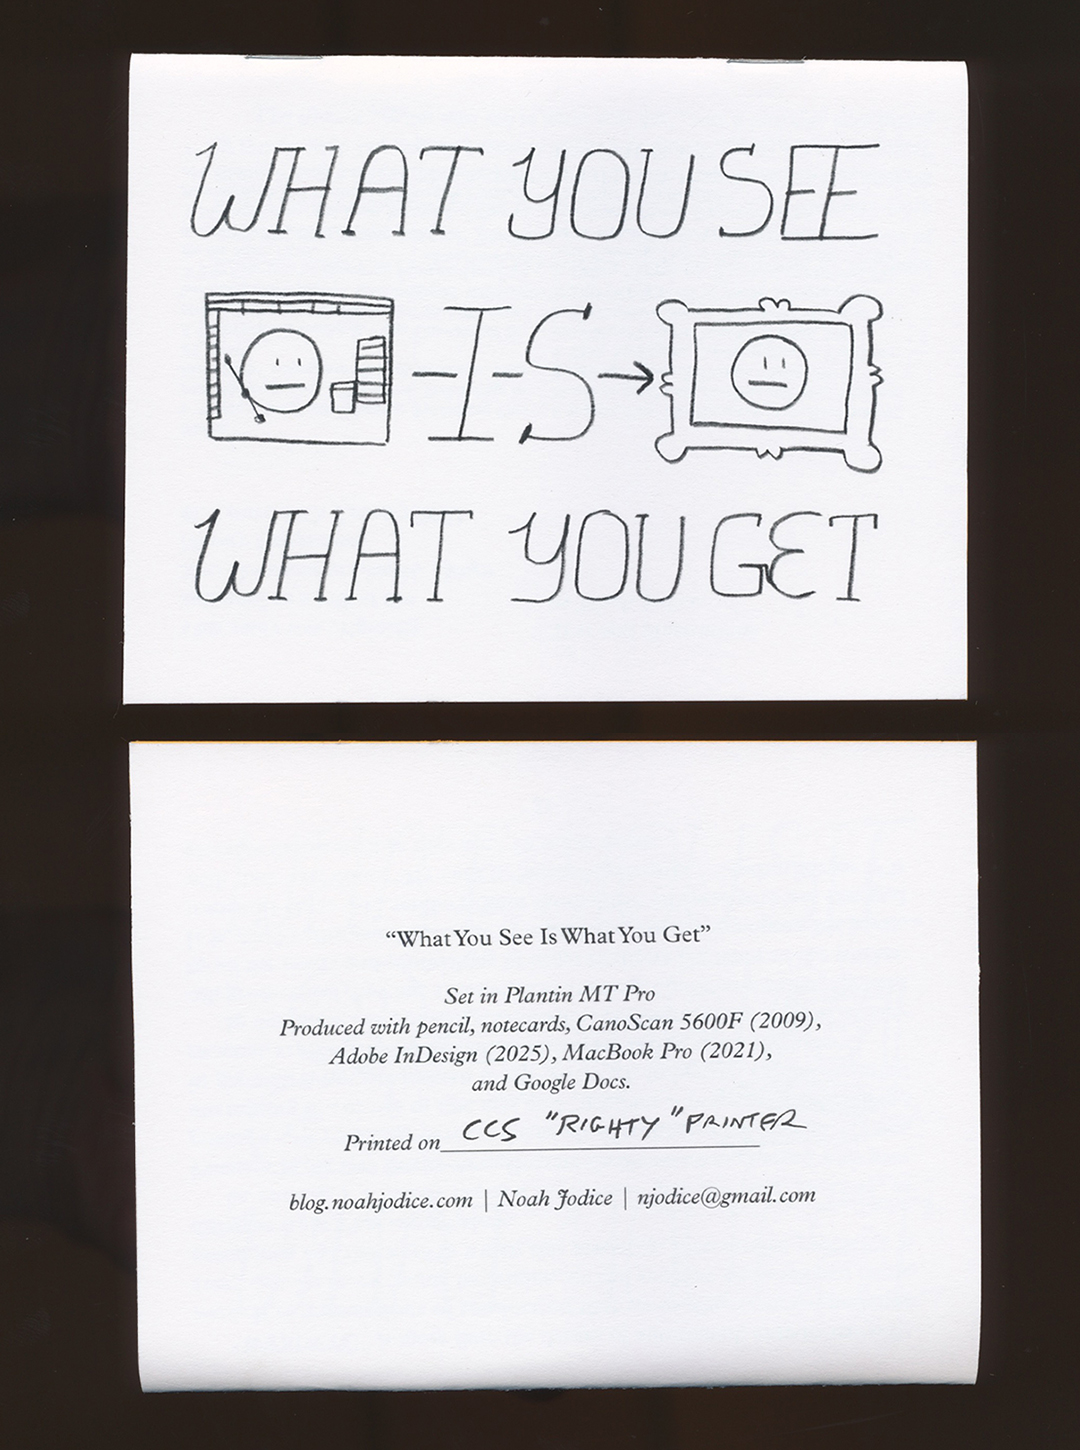 WHAT YOU SEE
IS
WHAT YOU GET
“What You See Is What You Get”
Set in Plantin MT Pro
Produced with pencil, notecards, CanoScan 5600F (2009),
Adobe InDesign (2025), MacBook Pro (2021),
and Google Docs.
Printed on CCS "RIGHTY" PRINTER
blog.noahjodice.com | Noah Jodice | njodice@gmail.com